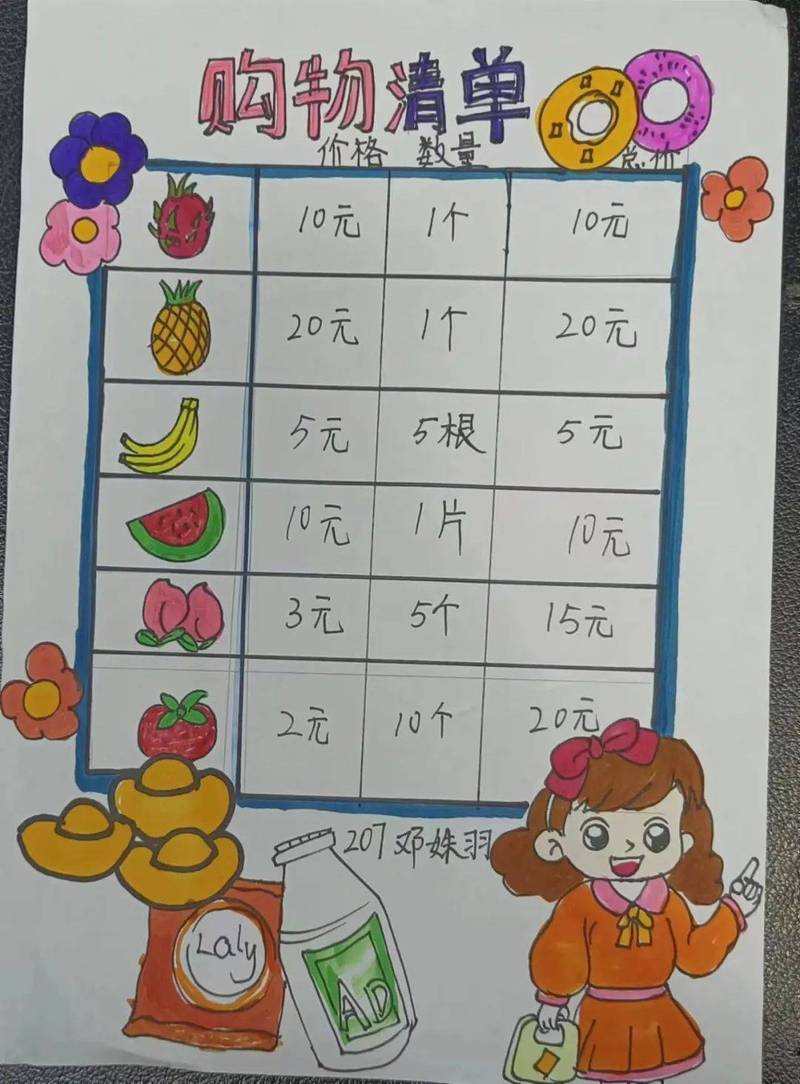 购物清单
价格 数量 总价
10元 1个 10元
20元 1个 20元
5元 5根 5元
10元 1片 10元
3元 5个 15元
2元 10个 20元
207 邓姝羽
Laly
AD